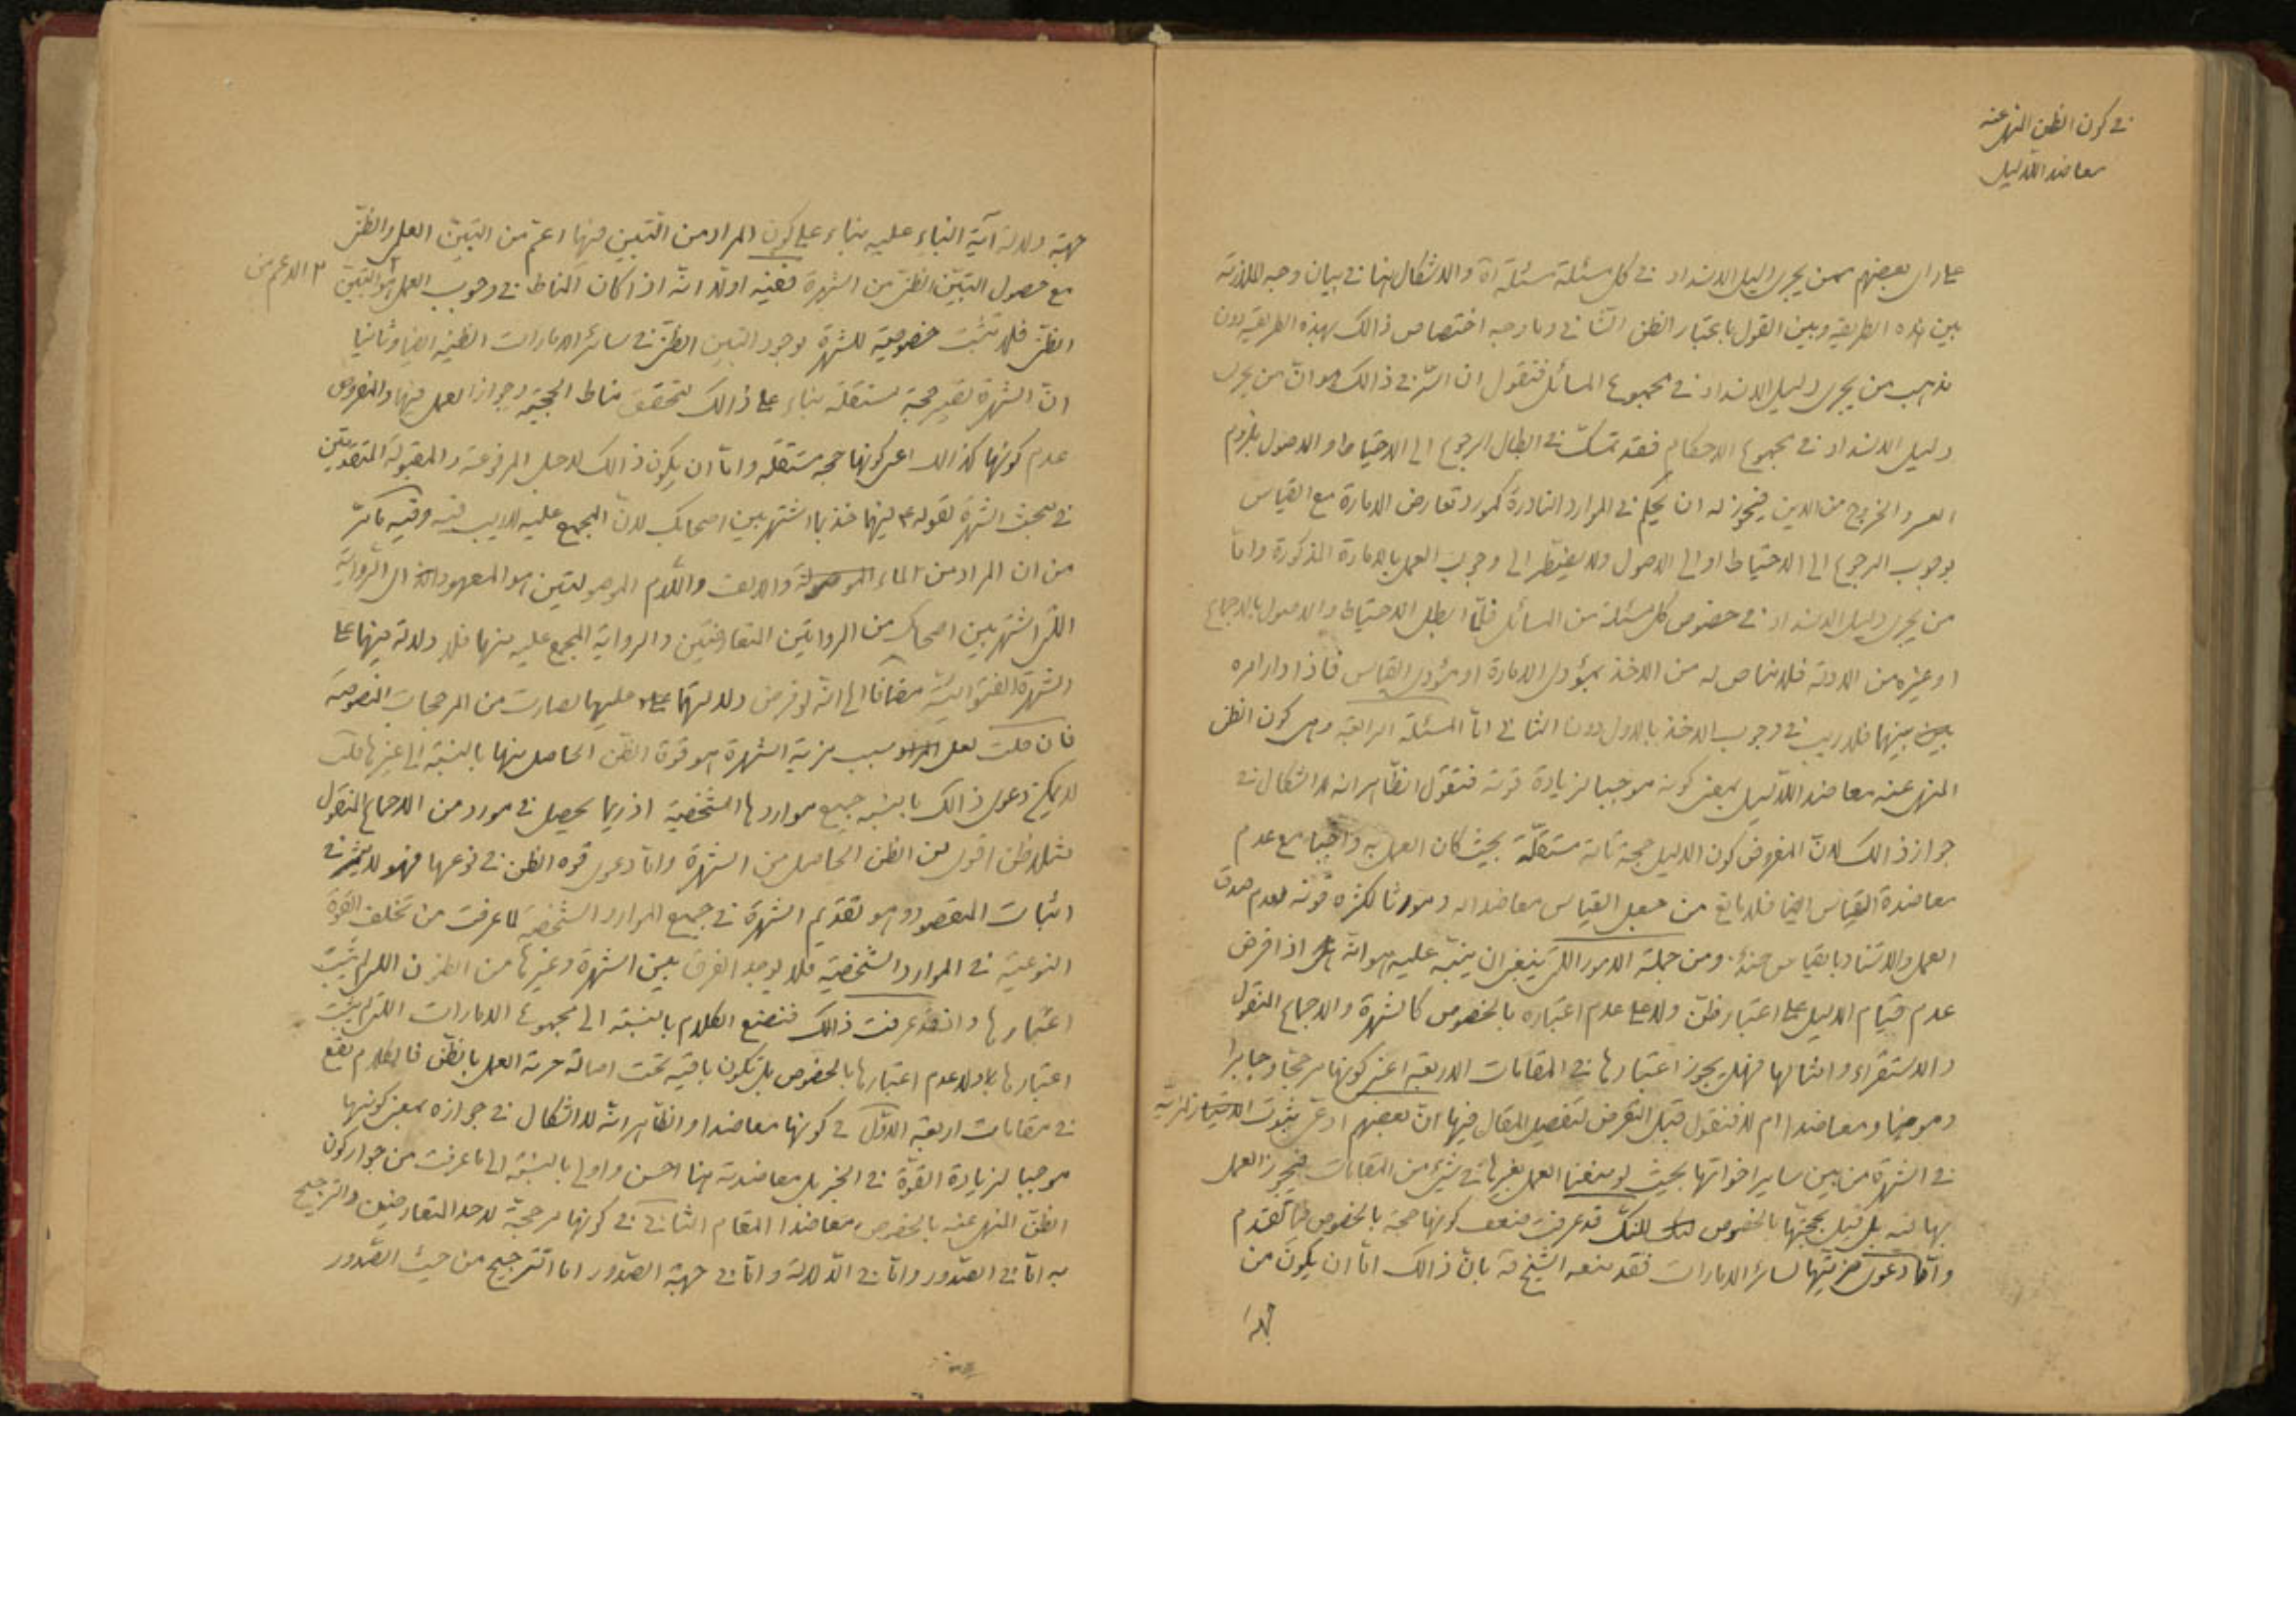 في كون الظن المنهي عنه
معاضد اللدليل
على راى بعضهم ممن يجرى دليل الانسداد في كل مسئلة مسئلة اة والاشكال هنا في بيان وجه الملازمة
بين هذه الطريقة وبين القول باعتبار الظن الثانى وما وجه اختصاص ذالك بهذه الطريقة دون
مذهب من يجرى دليل الانسداد في مجموع المسائل فنقول ان السّر في ذالك هو انّ من يجرى
دليل الانسداد في مجموع الاحكام فقد تمسّك في ابطال الرجوع الى الاحتياط او الاصول بلزوم
العسر والخروج من الدين فيجوز له ان يحكم في الموارد النادرة كمورد تعارض الامارة مع القياس
بوجوب الرجوع الى الاحتياط او الى الاصول ولا يضطر الى وجوب العمل بالامارة المذكورة وامّا
من يجرى دليل الانسداد في خصوص كل مسئلة من المسائل فلمّا ابطل الاحتياط والاصول بالاجماع
او غيره من الادلة فلا مناص له من الاخذ بمؤدى الامارة او مؤدى القياس فاذا دار امره
بينهما فلا ريب في وجوب الاخذ بالاول دون الثانى امّا المسئلة الرابعة وهى كون الظن
المنهى عنه معاضد اللدليل بمعنى كونه موجبا لزيادة قوته فنقول الظاهر انه لا اشكال في
جواز ذالك لانّ المفروض كون الدليل حجة تامة مستقلّة بحيث كان العمل به واجبا مع عدم
معاضدة القياس ايضا فلا مانع من جعل القياس معاضدا له ومورثا لكثرة قوته لعدم صدق
العمل والاستناد بالقياس حينئذ ومن جملة الامور اللتى ينبغى ان ينبّه عليه هو انّه اذا فرض
عدم قيام الدليل على اعتبار ظنّ ولا على عدم اعتباره بالخصوص كالشهرة والاجماع المنقول
والاستقراء وامثالها فهل يجوز اعتبارها في المقامات الاربعة اعنى كونها مرجحا وجابرا
وموهنا ومعاضدا ام لا فنقول قبل التعرض لتفصيل المقال فيها انّ بعضهم ادعى ثبوت المزية
في الشهرة من بين ساير اخواتها بحيث لو منعنا العمل بغيرها في شيء من المقامات فيجوز العمل
بها فيه بل قيل بحجيتها بالخصوص لكنك قد عرفت ضعف كونها حجة بالخصوص فيما تقدم
وامّا دعوى مزيّتها لسائر الامارات فقد منعه الشيخ ره بانّ ذالك امّا ان يكون من
جهة
جهة دلالة آية النباء عليه بناء على كون المراد من التبين فيها اعم من التبين العلمى والظنى
مع حصول التبيّن الظنى من الشهرة ففيه اولا انّه اذا كان المناط في وجوب العمل هو التبين الاعم من
الظنى فلا تثبت خصوصية للشهرة لوجود التبين الظنى في سائر الامارات الظنية ايضا وثانيا
انّ الشهرة تصير حجة مستقلة بناء على ذالك لتحقق مناط الحجية وجواز العمل فيها والمفروض
عدم كونها كذالك اعنى كونها حجة مستقلة وامّا ان يكون ذالك لاجل المرفوعة والمقبولة المتقدمتين
في مبحث الشهرة لقوله ع فيهما خذ بما اشتهر بين اصحابك لانّ المجمع عليه لا ريب فيه وفيه ما مرّ
من ان المراد من الماء الموصولة والالف واللّام الموصولتين هو المعهود اى الرّواية
اللتى اشتهر بين اصحابك من الروايتين المتعارضتين والرواية المجمع عليه منهما فلا دلالة فيهما على
الشهرة الفتوائية مضافا الى انّه لو فرض دلالتهما عليها لصارت من المرجحات المنصوصة
فان قلت لعل سبب مزية الشهرة هو قوة الظن الحاصل منها بالنسبة الى غيرها قلت
لا يمكن دعوى ذالك بالنسبة جميع مواردها الشخصية اذ ربما يحصل في مورد من الاجماع المنقول
مثلا ظن اقوى من الظن الحاصل من الشهرة وامّا دعوى قوة الظن في نوعها فهو لا يثمر في
اثبات المقصود وهو تقديم الشهرة في جميع الموارد الشخصية لما عرفت من تخلف القوة
النوعية في الموارد الشخصية فلا يوجد الفرق بين الشهرة وغيرها من الظنون اللتى لم يثبت
اعتبارها واذ قد عرفت ذالك فنضع الكلام بالنسبة الى مجموع الامارات اللتى لم يثبت
اعتبارها ولا عدم اعتبارها بالخصوص بل تكون باقية تحت اصالة حرمة العمل بالظن فالكلام يقع
في مقامات اربعة الاوّل في كونها معاضدا والظاهر انّه لا اشكال في جوازه بمعنى كونها
موجبا لزيادة القوّة في الخبر بل معاضدته هنا احسن واولى بالنسبة الى ما عرفت من جواز كون
الظنّ المنهى عنه بالخصوص معاضدا المقام الثانى في كونها مرجحة لاحد المتعارضين والترجيح
به امّا في الصّدور وامّا في الدّلالة وامّا في جهة الصّدور امّا الترجيح من حيث الصّدور